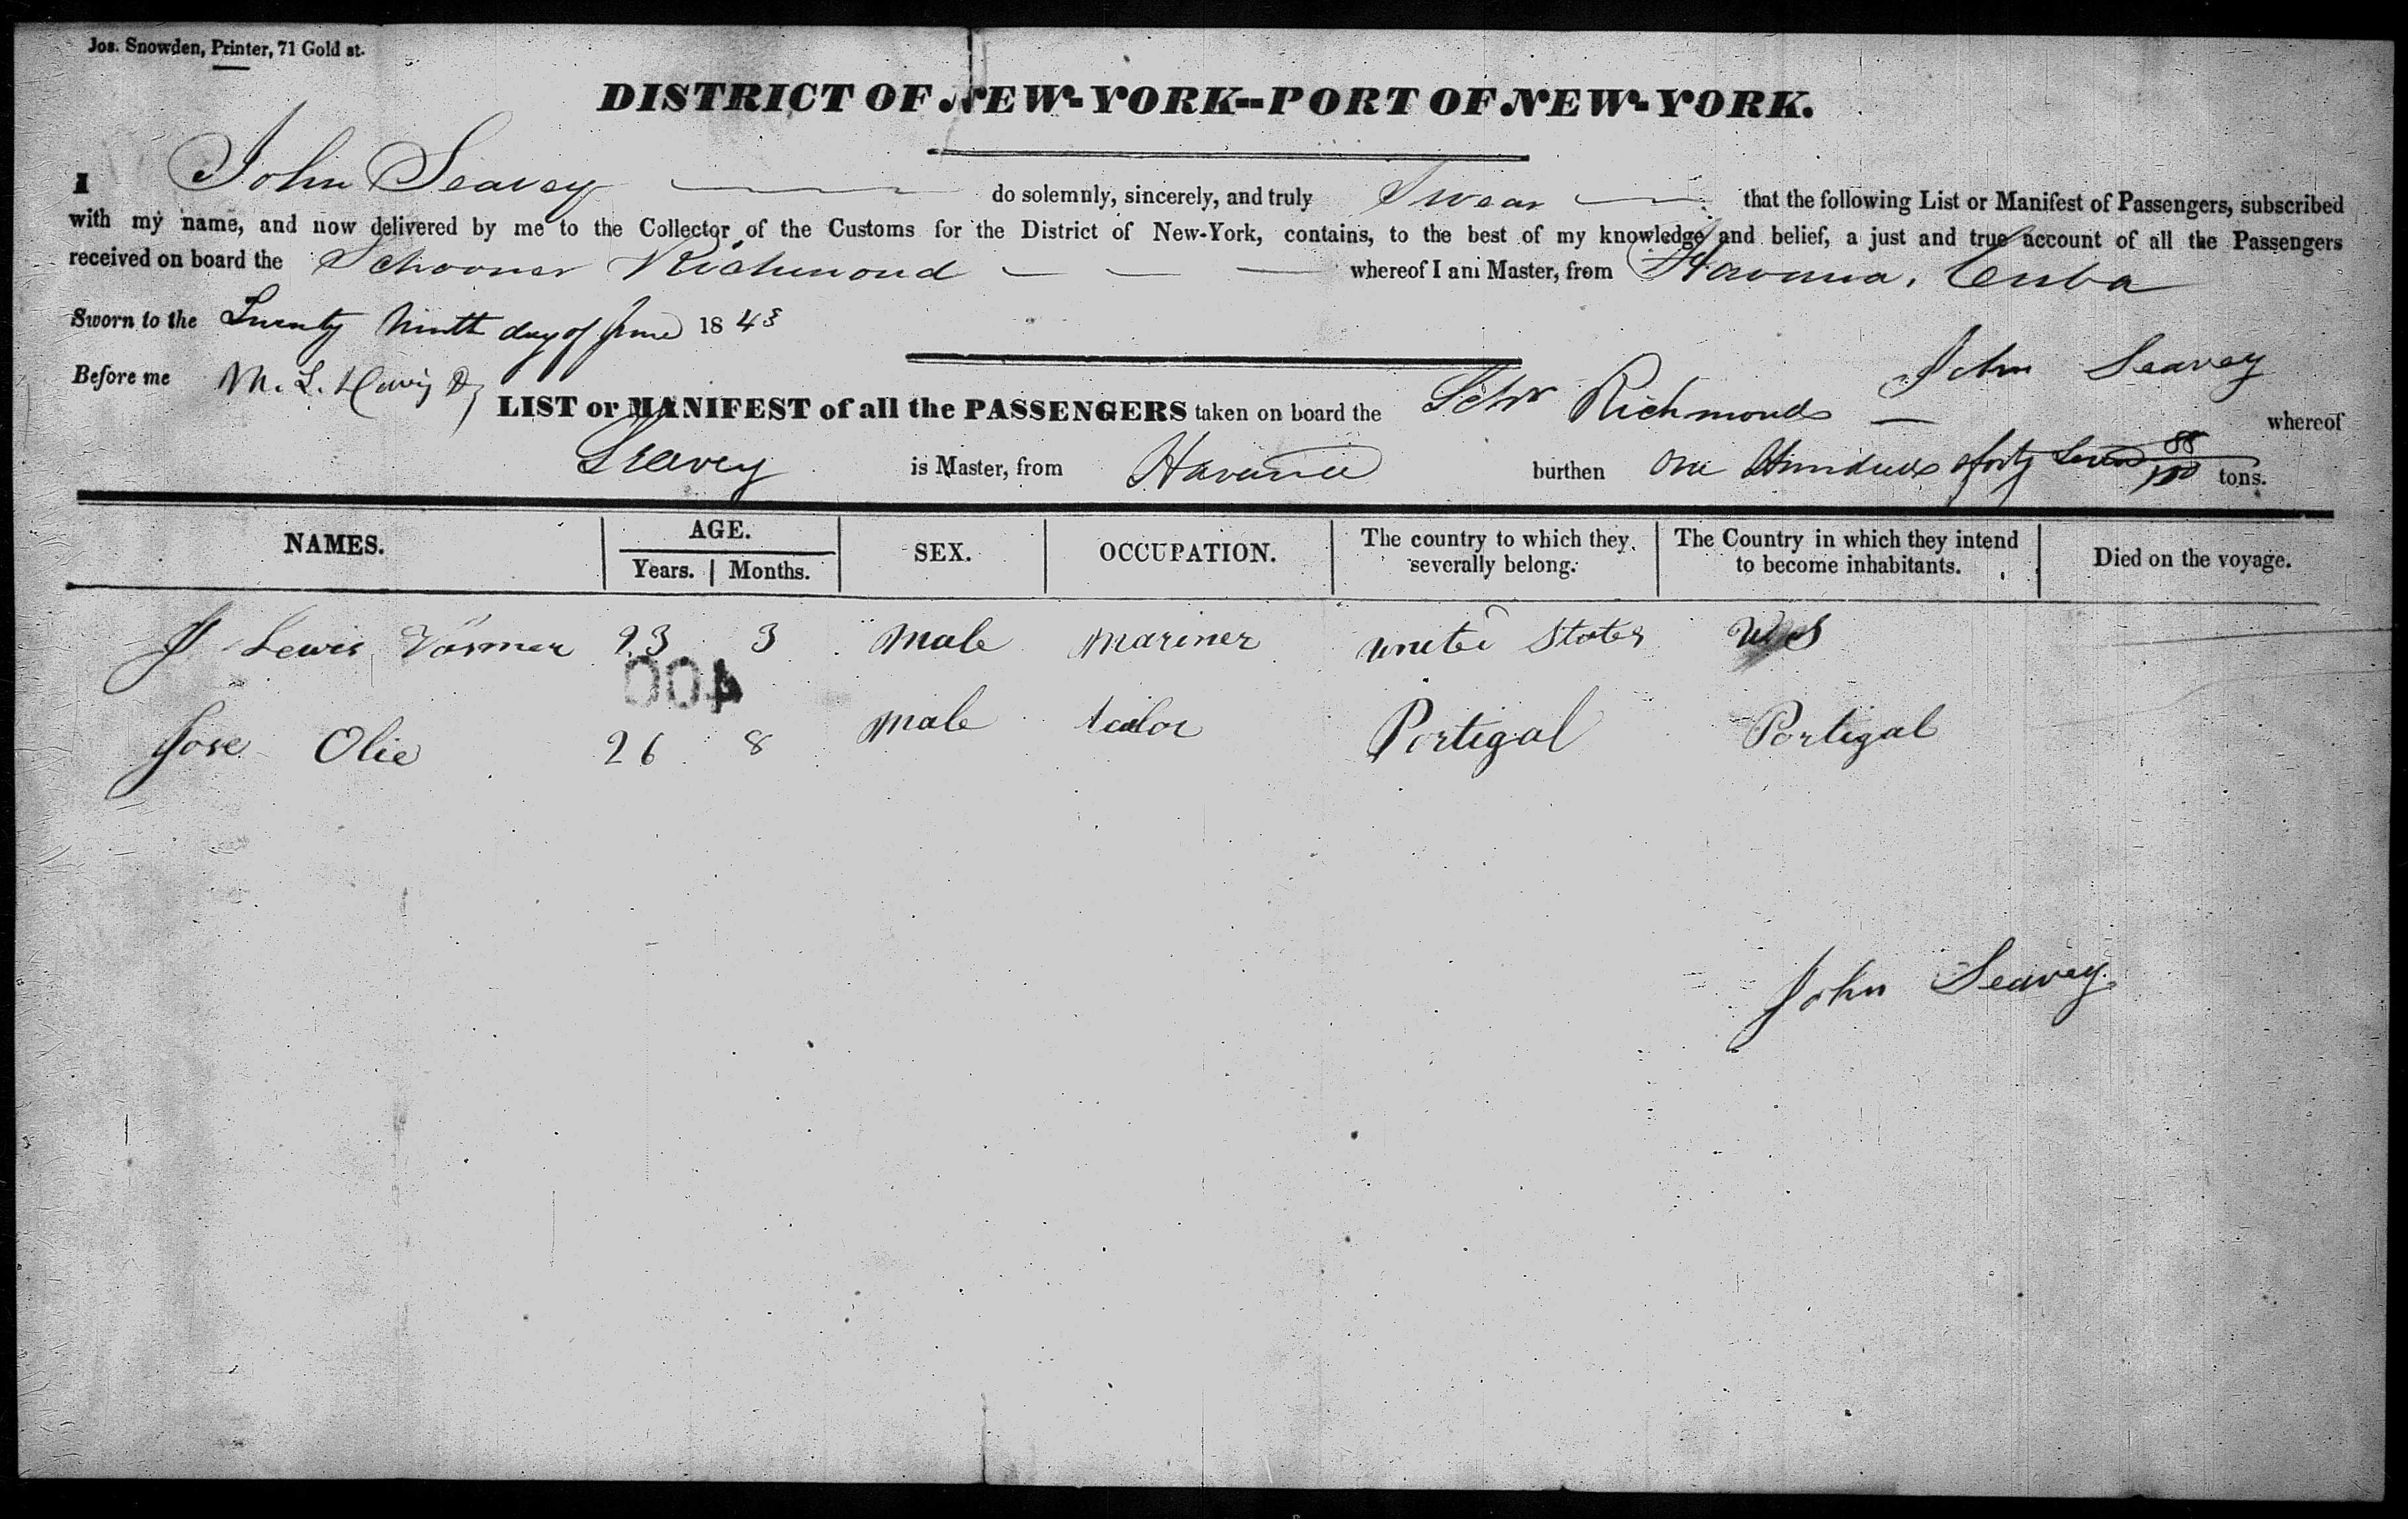 Jos. Snowden, Printer, 71 Gold st.
DISTRICT OF NEW-YORK--PORT OF NEW-YORK.
I John Seavey do solemnly, sincerely, and truly Swear that the following List or Manifest of Passengers, subscribed
with my name, and now delivered by me to the Collector of the Customs for the District of New-York, contains, to the best of my knowledge and belief, a just and true account of all the Passengers
received on board the Schooner Richmond whereof I am Master, from Havana, Cuba
Sworn to the Twenty Ninth day of June 1843
John Seavey
Before me M. L.
LIST or MANIFEST of all the PASSENGERS taken on board the Schr Richmond whereof
Seavey is Master, from Havana burthen One Hundred & forty Seven 88/100 tons.
NAMES. AGE. SEX. OCCUPATION. The country to which they severally belong. The Country in which they intend to become inhabitants. Died on the voyage.
Years. Months.
J Lewis 23 3 Male Mariner United States US
004
Jose Olie 26 8 Male Portigal Portigal
John Seavey